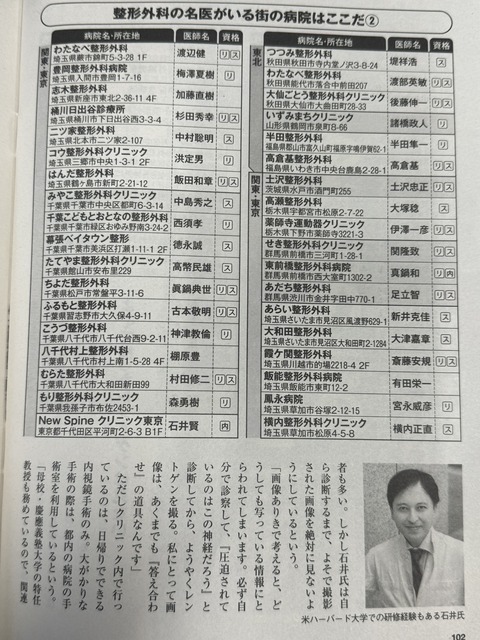 整形外科の名医がいる街の病院はここだ②
病院名・所在地 医師名 資格
関東・東京
わたなべ整形外科
埼玉県蕨市錦町5-3-28 1F 渡辺健 リ ス
豊岡整形外科病院
埼玉県入間市豊岡1-7-16 梅澤夏樹 リ
志木整形外科
埼玉県新座市東北2-36-11 4F 加藤直樹
桶川日出谷診療所
埼玉県桶川市下日出谷西3-3-4 杉田秀幸 リ ス
二ツ家整形外科
埼玉県北本市二ツ家2-107 中村聡明 ス
コウ整形外科クリニック
埼玉県三郷市中央1-3-1 2F 洪定男 リ
はんだ整形外科
埼玉県鶴ヶ島市新町2-21-12 飯田和章 リ ス
みやこ整形外科クリニック
千葉県千葉市中央区都町6-3-14 中島秀之 ス
千葉こどもとおとなの整形外科
千葉県千葉市緑区おゆみ野南3-24-2 西須孝 リ
幕張ベイタウン整形
千葉県千葉市美浜区打瀬1-11-1 2F 徳永誠 ス
たてやま整形外科クリニック
千葉県館山市安布里229 高幣民雄 ス
ちよだ整形外科
千葉県松戸市常盤平3-11-6 眞鍋典世 リ ス
ふるもと整形外科
千葉県習志野市大久保4-9-11 古本敬明 リ ス
こうづ整形外科
千葉県八千代市八千代台西9-2-11 神津教倫 リ
八千代村上整形外科
千葉県八千代市村上南1-5-28 4F 棚原豊
むらた整形外科
千葉県八千代市大和田新田99 村田修二 リ ス
もり整形外科クリニック
千葉県我孫子市布佐2453-1 森勇樹 リ
New Spine クリニック東京
東京都千代田区平河町2-6-3 B1F 石井賢 内
病院名・所在地 医師名 資格
東北
つつみ整形外科
秋田県秋田市寺内堂ノ沢3-8-24 堤祥浩 ス
わたなべ整形外科
秋田県能代市落合中前田207 渡部英敏 リ ス
大仙ごとう整形外科クリニック
秋田県大仙市大曲田町28-33 後藤伸一 リ ス
いずみまちクリニック
山形県鶴岡市泉町8-66 諸橋政人 リ
半田整形外科
福島県郡山市富久山町福原字鳴伊賀62-1 半田隼一 リ
高倉基整形外科
福島県いわき市中央台鹿島2-28-1 高倉基 リ ス
関東・東京
土沢整形外科
茨城県水戸市酒門町255 土沢忠正 リ ス
高瀬整形外科
栃木県宇都宮市松原2-7-22 大塚稔 ス
薬師寺運動器クリニック
栃木県下野市薬師寺3221-3 伊澤一彦 リ ス
せき整形外科クリニック
群馬県前橋市三河町1-28-1 関隆致 リ ス
東前橋整形外科病院
群馬県前橋市西大室町1302-2 真鍋和 リ 内
あだち整形外科
群馬県渋川市金井字田中770-1 足立智 リ ス
あらい整形外科
埼玉県さいたま市見沼区風渡野629-1 新井克佳 ス
大和田整形外科
埼玉県さいたま市見沼区大和田町2-1284 大津嘉章 ス
霞ケ関整形外科
埼玉県川越市的場2218-4 2F 斎藤安規 リ ス
飯能整形外科病院
埼玉県飯能市東町12-2 有田栄一
鳳永病院
埼玉県草加市谷塚2-12-15 宮永威彦 リ
横内整形外科クリニック
埼玉県草加市松原4-5-8 横内正直 ス
者も多い。しかし石井氏は自
ら診断するまで、よそで撮影
された画像を絶対に見ないよ
うにしているという。
「画像ありきで考えると、ど
うしても写っている情報にと
らわれてしまいます。必ず自
分で診察して、『圧迫されて
いるのはこの神経だろう』と
診断してから、ようやくレン
トゲンを撮る。私にとって画
像は、あくまでも〝答え合わ
せ〟の道具なんです」
ただしクリニック内で行っ
ているのは、日帰りでできる
内視鏡手術のみ。大がかりな
手術の際は、都内の病院の手
術室を利用しているという。
「母校・慶應義塾大学の特任
教授も務めているので、関連
米ハーバード大学での研修経験もある石井氏
102